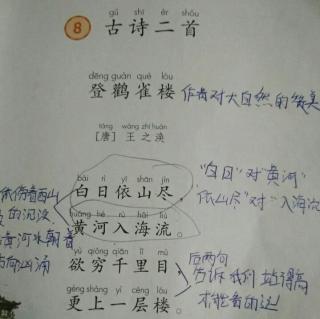 gǔ shī èr shǒu
8 古诗二首
dēng guàn què lóu
登鹳雀楼 作者对大自然的赞美
táng wáng zhī huàn
[唐] 王之涣
bái rì yī shān jìn
白日依山尽，
"白日"对"黄河"
依山尽"对"入海流
huáng hé rù hǎi liú
黄河入海流。
yù qióng qiān lǐ mù
欲穷千里目，
gèng shàng yì céng lóu
更上一层楼。
后两句
告诉我们 站得高
才能看的远